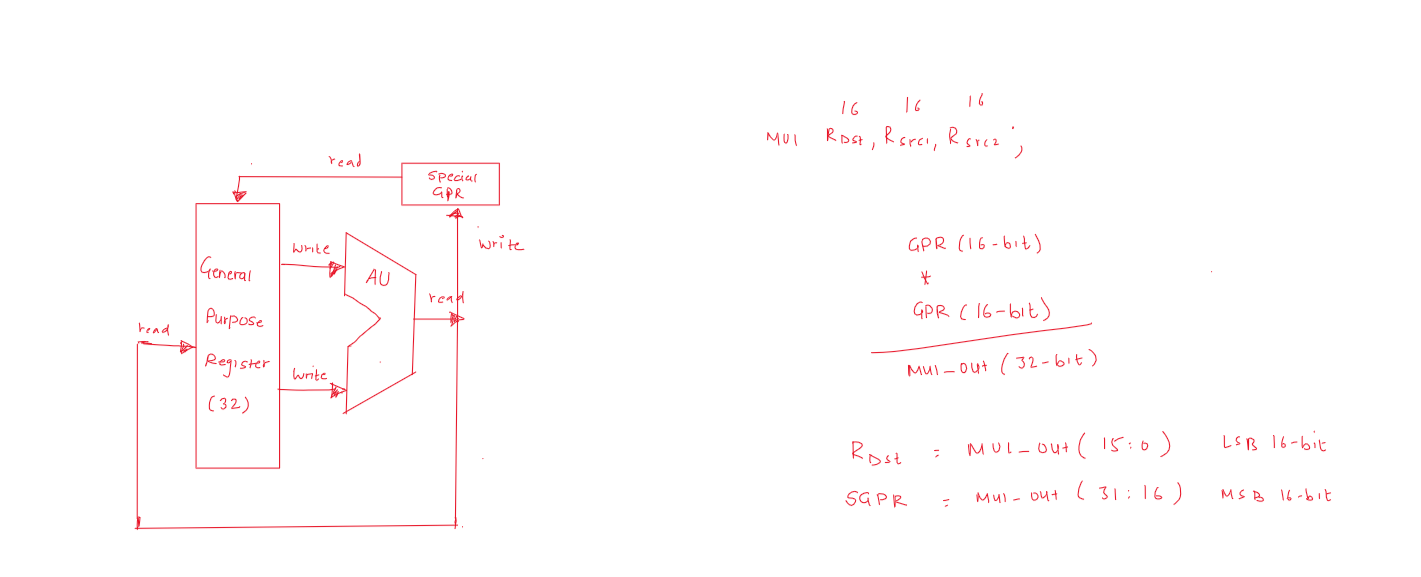 read
Special
GPR
write
write
General
Purpose
Register
(32)
AU
read
read
write
16 16 16
MUL RDst, Rsrc1, Rsrc2 ;
GPR (16-bit)
*
GPR (16-bit)
MUL_out (32-bit)
RDst = MUL_out (15:0) LSB 16-bit
SGPR = MUL_out (31:16) MSB 16-bit